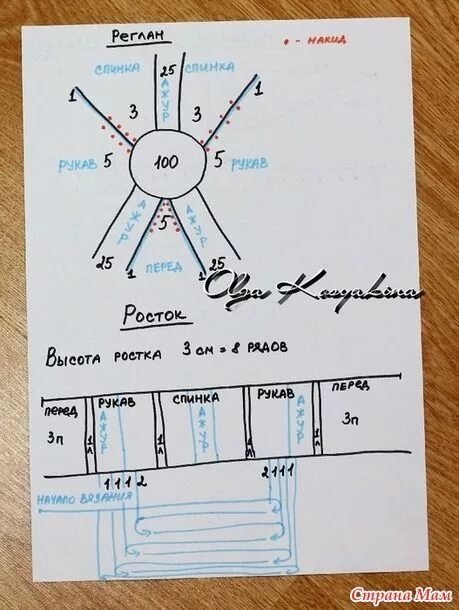 Реглан
• - накид
спинка 25 спинка
ажур
1 3 3 1
рукав 5 100 5 рукав
ажур 5 ажур
25 1 перед 1 25
Olga Kosyakina
Росток
Высота ростка 3 см = 8 рядов
перед рукав спинка рукав перед
3п 1п ажур 1п ажур 1п ажур 1п 3п
1 1 1 2 2 1 1 1
начало вязания
Страна Мам